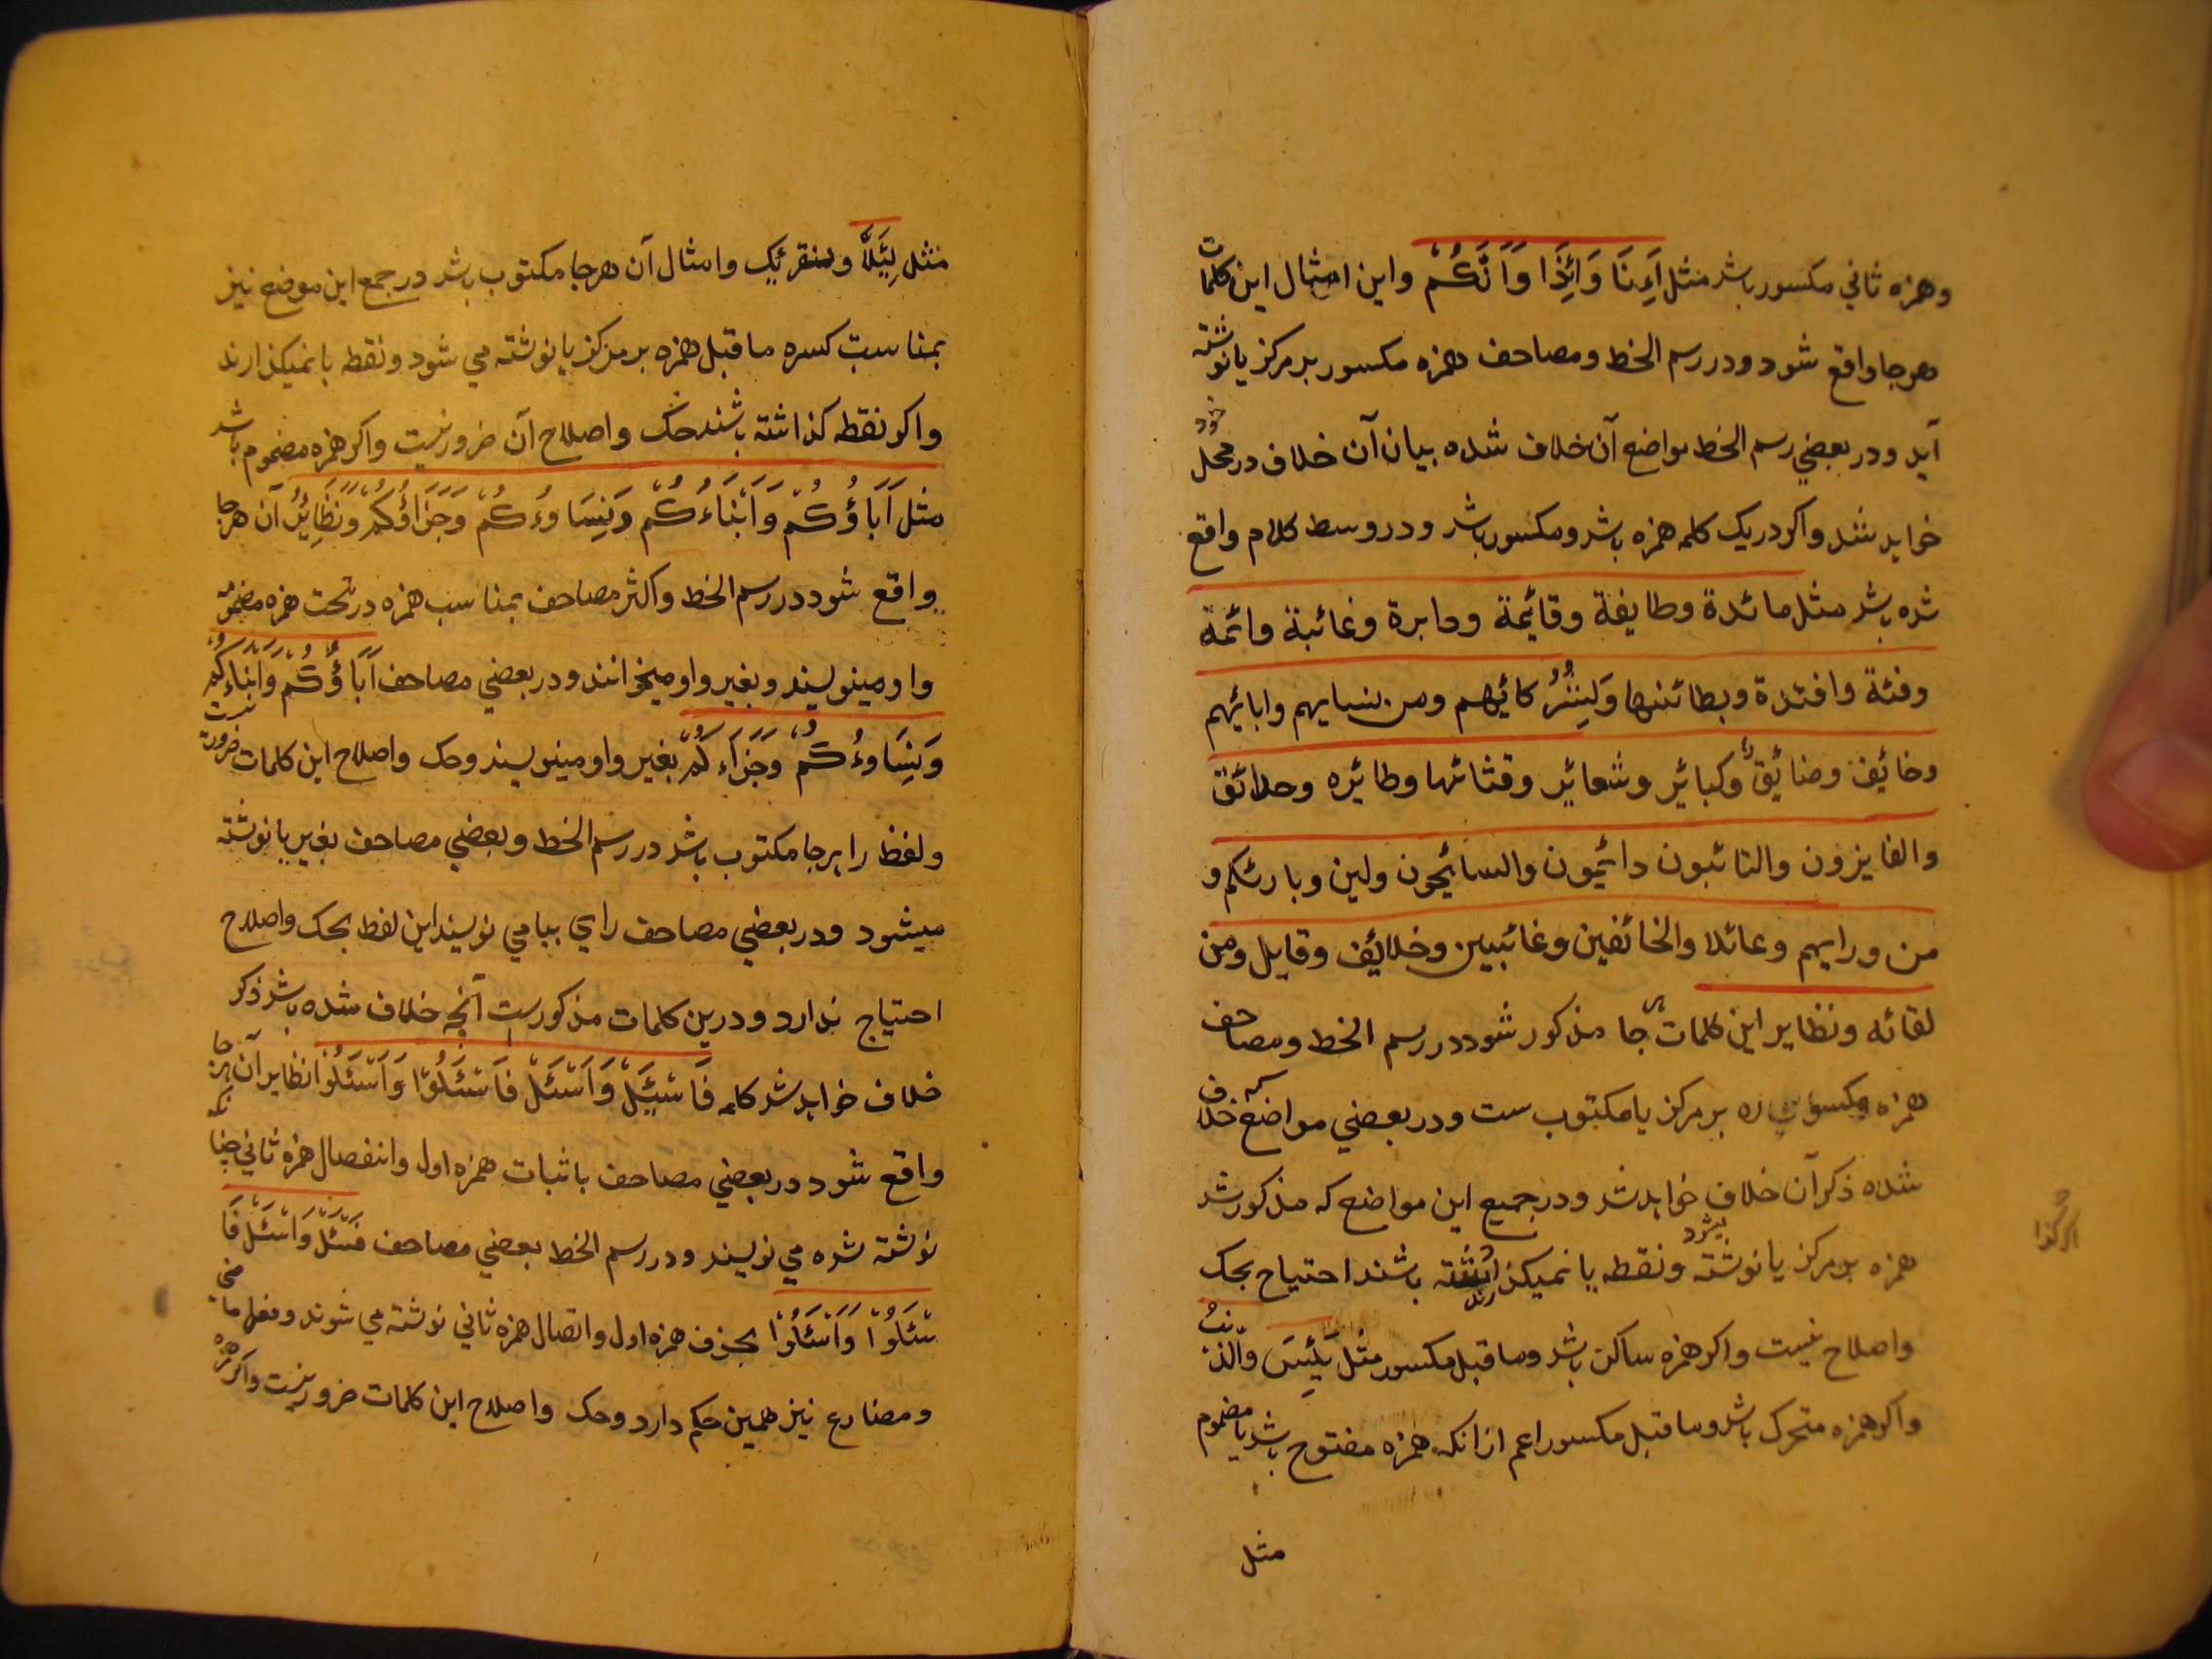 وهمزه ثاني مكسور باشد مثل اَئِنَا وَائِذَا وَاَئِنَّكُمْ واين امثال اين كلمات
هرجا واقع شود ودر رسم الخط ومصاحف همزه مكسور بر مركز يا نوشته
آيد ودر بعضي رسم الخط مواضع آن خلاف شده بيان آن خلاف در محل خود
خوابد شد واكر دريك كلمه همزه باشد ومكسور باشد ودر وسط كلام واقع
شده باشد مثل مائدة وطايفة وقائمة ودابرة وغائبة وائمة
وفئة وافئدة وبطائنها كائهم ومن نسايهم وابائهم
وخائف وضائق وكبائر وشعائر وقثائها وطائره وحدائق
والفايزون والتائبون دائمون والسائحون ولين وبارئكم و
من ورايهم وعائلا والخائفين وغائبين وخلائف وقايل ومن
لقائه ونظاير اين كلمات جا مذكور شود در رسم الخط ومصاحف
همزه مكسوره بر مركز يا مكتوب ست ودر بعضي مواضع كه خلاف
شده ذكر آن خلاف خوابد شد ودر جميع اين مواضع كه مذكور شد
همزه بر مركز يا نوشته ميشود ونقطه يا نميكذارند باشند احتياج بحك
اكر كذا
واصلاح نيست واكر همزه ساكن باشد وما قبل مكسور مثل بَئِيسَ والذئب
واكر همزه متحرك باشد وما قبل مكسور اعم از انكه همزه مفتوح باشد يا مضموم
مثل
مثل لِئَلَّا وسنقرئك وامثال آن هرجا مكتوب باشد در جمع اين موضع نيز
بمناسبت كسره ما قبل همزه بر مركز يا نوشته مي شود ونقطه يا نميكذارند
واكر نقطه كذاشته باشند حك واصلاح آن ضرور نيست واكر همزه مضموم باشد
مثل اَبَاؤُكُمْ وَاَبْنَاءُكُمْ وَنِسَاوءُكُمْ وَجَزَاؤُكُمْ وَنَظَائِرُ آن هرجا
واقع شود در رسم الخط واكثر مصاحف بمناسب همزه در تحت همزه مضمومه
واو مينويسند وبغير واو ميخوانند ودر بعضي مصاحف اَبَاؤُكُمْ وَاَبْنَاءُكُمْ
وَنِسَاوءُكُمْ وَجَزَاءُكُمْ بغير واو مينويسند وحك واصلاح اين كلمات ضرورت نيست
ولفظ را بهرجا مكتوب باشد در رسم الخط وبعضي مصاحف بغير يا نوشته
ميشود ودر بعضي مصاحف راي بيا مي نويسند اين لفظ بحك واصلاح
احتياج ندارد ودرين كلمات مذكور ست آنچه خلاف شده باشد ذكر
خلاف خوابد شد كلمه فَاسْئَلْ وَاَسْئَلْ فَاسْئَلُوْا وَاَسْئَلُوْا نظاير آن هرجا
واقع شود در بعضي مصاحف باثبات همزه اول وانفصال همزه ثاني چنانكه
نوشته شده مي نويسند ودر رسم الخط بعضي مصاحف فَسْئَلْ وَاسْئَلْ فَا
سْئَلُوْا وَاَسْئَلُوْا بحذف همزه اول واتصال همزه ثاني نوشته مي شوند وفعل ماضي
ومضارع نيز همين حكم دارد وحك واصلاح اين كلمات ضرور نيست واكر همزه